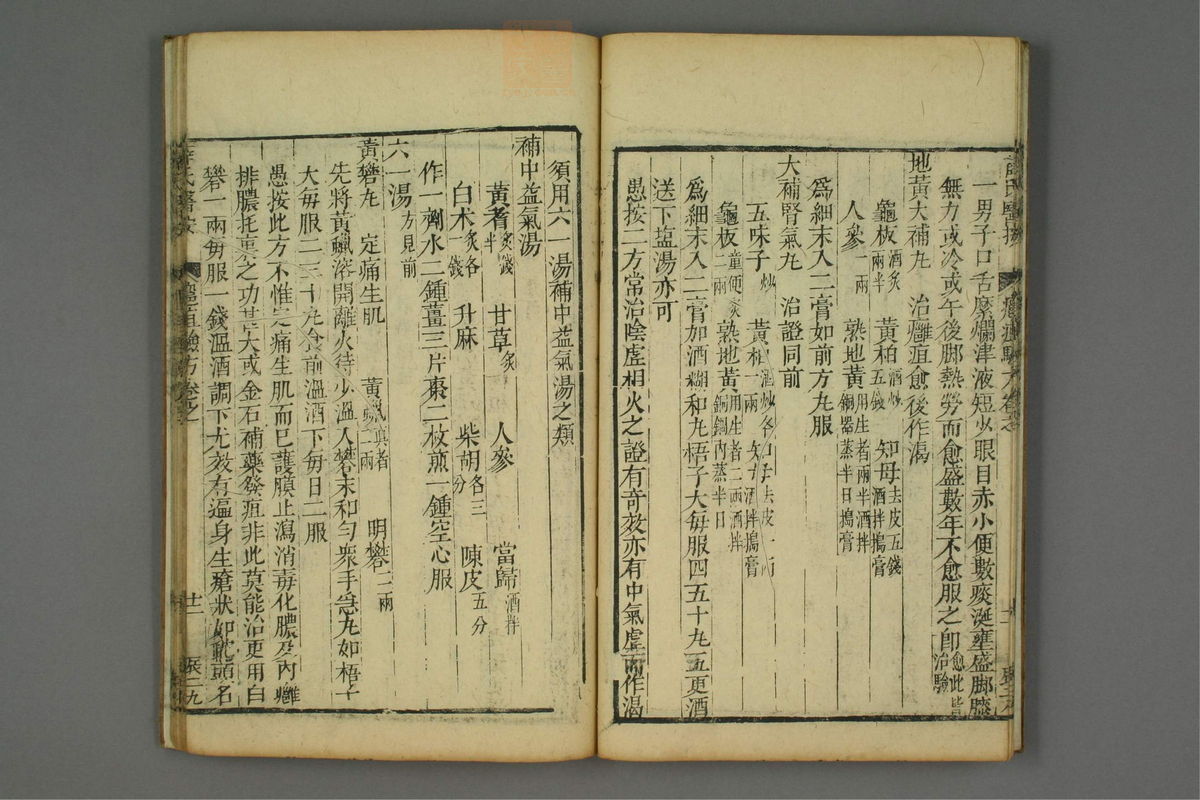 一男子口舌糜爛津液短少眼目赤小便數痰涎壅盛脚膝
無力或冷或午後脚熱勞而愈盛數年不愈服之卽愈此皆治驗
地黃大補丸　治癰疽愈後作渴
龜板酒炙兩半　黃柏酒炒五錢　知母去皮五錢酒拌搗膏
人參一兩　熟地黃用生者兩半酒拌銅器蒸半日搗膏
爲細末入二膏如前方丸服
大補腎氣丸　治證同前
五味子炒　黃柏酒炒各一兩　知母去皮一兩酒拌搗膏
龜板童便炙二兩　熟地黃用生者二兩酒拌銅鍋內蒸半日
爲細末入二膏加酒糊和丸梧子大每服四五十丸五更酒
送下塩湯亦可
愚按二方常治陰虛相火之證有奇效亦有中氣虛而作渴
須用六一湯補中益氣湯之類
補中益氣湯
黃耆炙錢半　甘草炙　人參　當歸酒拌
白朮炙各一錢　升麻　柴胡各三分　陳皮五分
作一劑水二鍾薑三片棗二枚煎一鍾空心服
六一湯方見前
黃礬丸　定痛生肌　黃蠟真者一兩　明礬二兩
先將黃蠟溶開離火待少溫入礬末和勻衆手急丸如梧子
大每服二三十丸食前溫酒下每日二服
愚按此方不惟定痛生肌而已護膜止瀉消毒化膿及內癰
排膿托裏之功甚大或金石補藥發疽非此莫能治更用白
礬一兩每服一錢溫酒調下尤效有遍身生瘡狀如蛇頭名
薛氏醫按　癰疽驗方卷之　廿二　辰二九